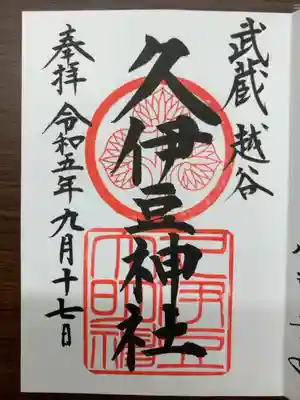 武蔵 越谷
久伊豆神社
奉拝 令和五年九月十七日